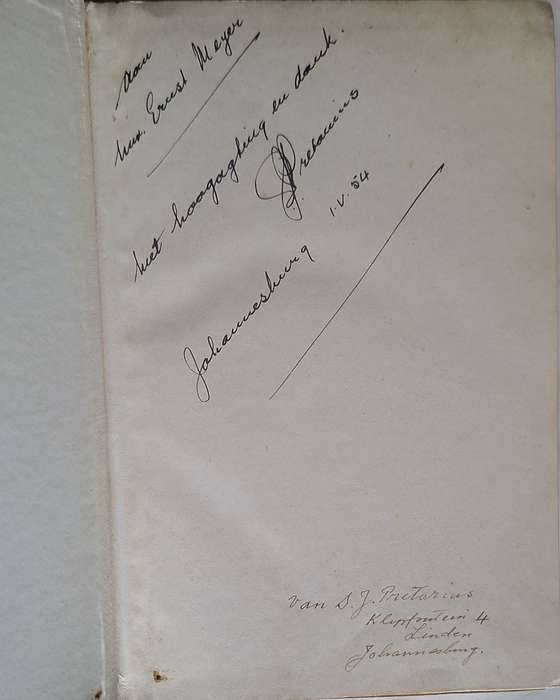 Aan
Mnr. Ernst Meyer
met hoogagting en dank.
SJPretorius
1.V.54
Johannesburg
van S. J. Pretorius
Klipfontein 4
Linden
Johannesburg.